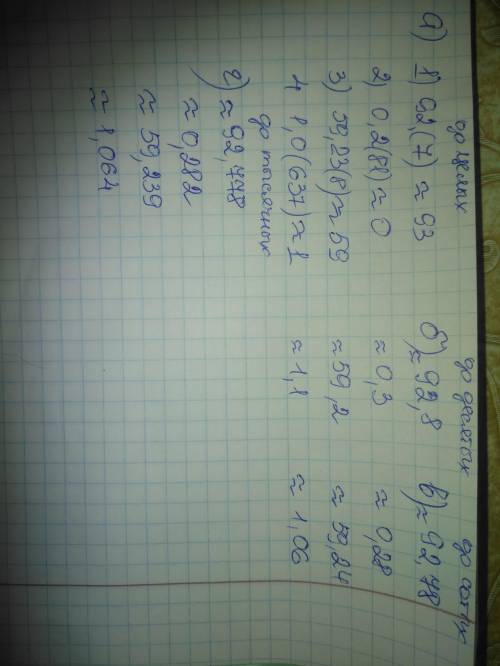 до целых до десятых до сотых
а) 1) 92,(7) ≈ 93 б) ≈ 92,8 в) ≈ 92,78
2) 0,2(81) ≈ 0 ≈ 0,3 ≈ 0,28
3) 59,23(8) ≈ 59 ≈ 59,2 ≈ 59,24
4 1,0(637) ≈ 1 ≈ 1,1 ≈ 1,06
до тысячных
г) ≈ 92,778
≈ 0,282
≈ 59,239
≈ 1,064